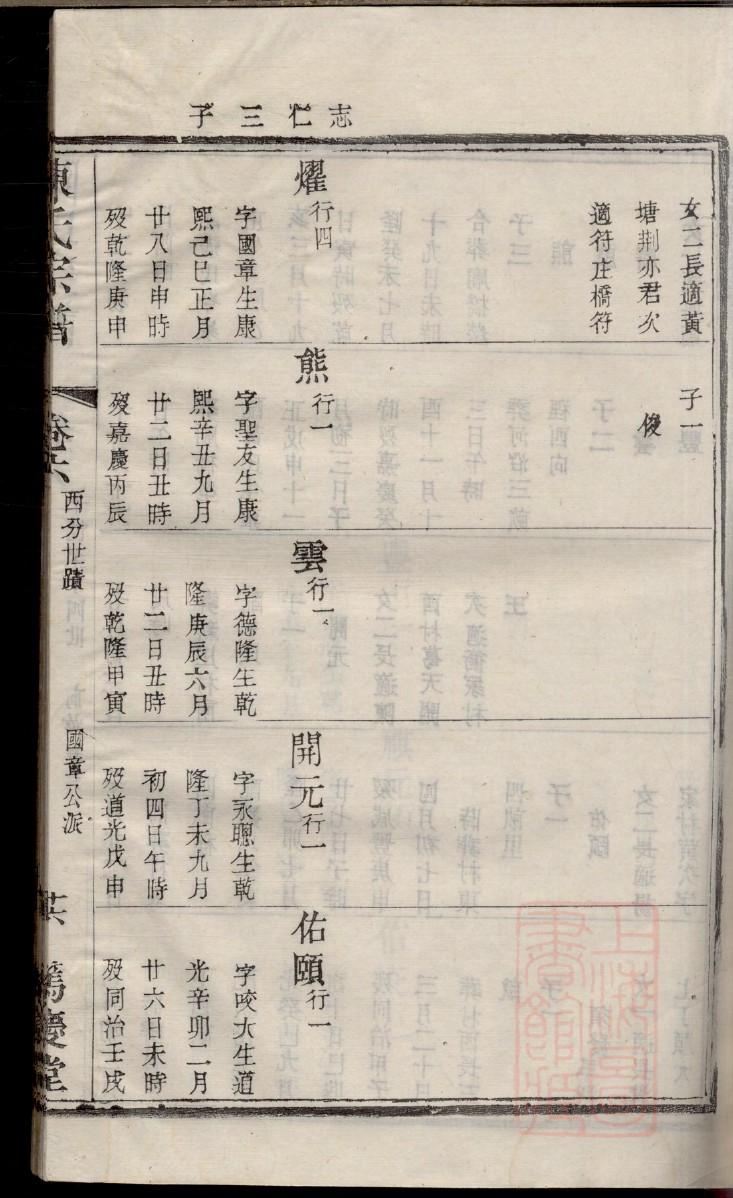 志仁三子
女二長適黃
塘荆亦君次
適符庄橋符
燿行四
字國章生康
熙己巳正月
廿八日申時
歿乾隆庚申
子一
俊
熊行一
字聖友生康
熙辛丑九月
廿二日丑時
歿嘉慶丙辰
雲行一
字德隆生乾
隆庚辰六月
廿二日丑時
歿乾隆甲寅
開元行一
字永聰生乾
隆丁未九月
初四日午時
歿道光戊申
佑頤行一
字咬大生道
光辛卯二月
廿六日未時
歿同治壬戌
陳氏宗譜
卷六
西分世蹟
國章公派
篤慶堂